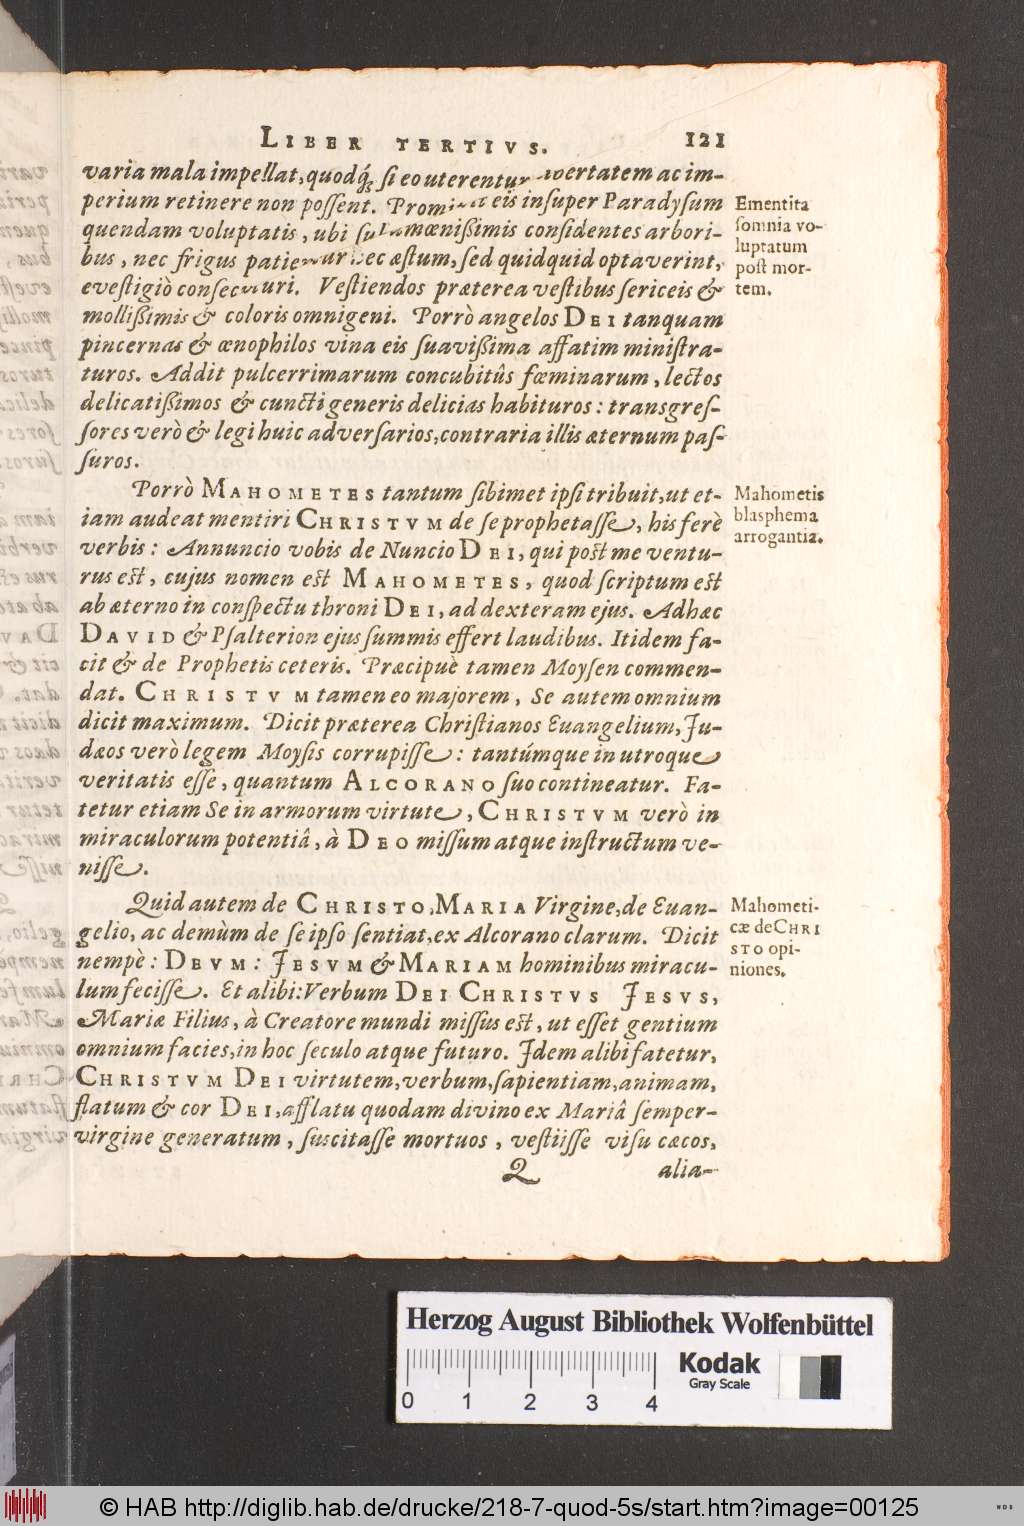 LIBER TERTIVS. 121
varia mala impellat, quodq́; si eo uterentur, ac im-
perium retinere non possent. eis insuper Paradysum
quendam voluptatis, ubi amœnißimis considentes arbori-
bus, nec frigus nec æstum, sed quidquid optaverint,
evestigiò consecuturi. Vestiendos præterea vestibus sericeis &
mollißimis & coloris omnigeni. Porrò angelos DEI tanquam
pincernas & œnophilos vina eis suavißima affatim ministra-
turos. Addit pulcerrimarum concubitûs fœminarum, lectos
delicatißimos & cuncti generis delicias habituros: transgres-
sores verò & legi huic adversarios, contraria illis æternum pas-
suros.
Ementita
somnia vo-
luptatum
post mor-
tem.
Porrò MAHOMETES tantum sibimet ipsi tribuit, ut et-
iam audeat mentiri CHRISTVM de se prophetasse, his ferè
verbis: Annuncio vobis de Nuncio DEI, qui post me ventu-
rus est, cujus nomen est MAHOMETES, quod scriptum est
ab æterno in conspectu throni DEI, ad dexteram ejus. Adhæc
DAVID & Psalterion ejus summis effert laudibus. Itidem fa-
cit & de Prophetis ceteris. Præcipuè tamen Moysen commen-
dat. CHRISTVM tamen eo majorem, Se autem omnium
dicit maximum. Dicit præterea Christianos Euangelium, Ju-
dæos verò legem Moysis corrupisse: tantúmque in utroque
veritatis esse, quantum ALCORANO suo contineatur. Fa-
tetur etiam Se in armorum virtute, CHRISTVM verò in
miraculorum potentiâ, à DEO missum atque instructum ve-
nisse.
Mahometis
blasphema
arrogantia.
Quid autem de CHRISTO, MARIA Virgine, de Euan-
gelio, ac demùm de se ipso sentiat, ex Alcorano clarum. Dicit
nempè: DEVM: JESVM & MARIAM hominibus miracu-
lum fecisse. Et alibi: Verbum DEI CHRISTVS JESVS,
Mariæ Filius, à Creatore mundi missus est, ut esset gentium
omnium facies, in hoc seculo atque futuro. Jdem alibi fatetur,
CHRISTVM DEI virtutem, verbum, sapientiam, animam,
flatum & cor DEI, afflatu quodam divino ex Mariâ semper-
virgine generatum, suscitasse mortuos, vestiisse visu cæcos,
Mahometi-
cæ de CHRI
STO opi-
niones.
Q alia-
Herzog August Bibliothek Wolfenbüttel
Kodak
Gray Scale
0 1 2 3 4
© HAB http://diglib.hab.de/drucke/218-7-quod-5s/start.htm?image=00125